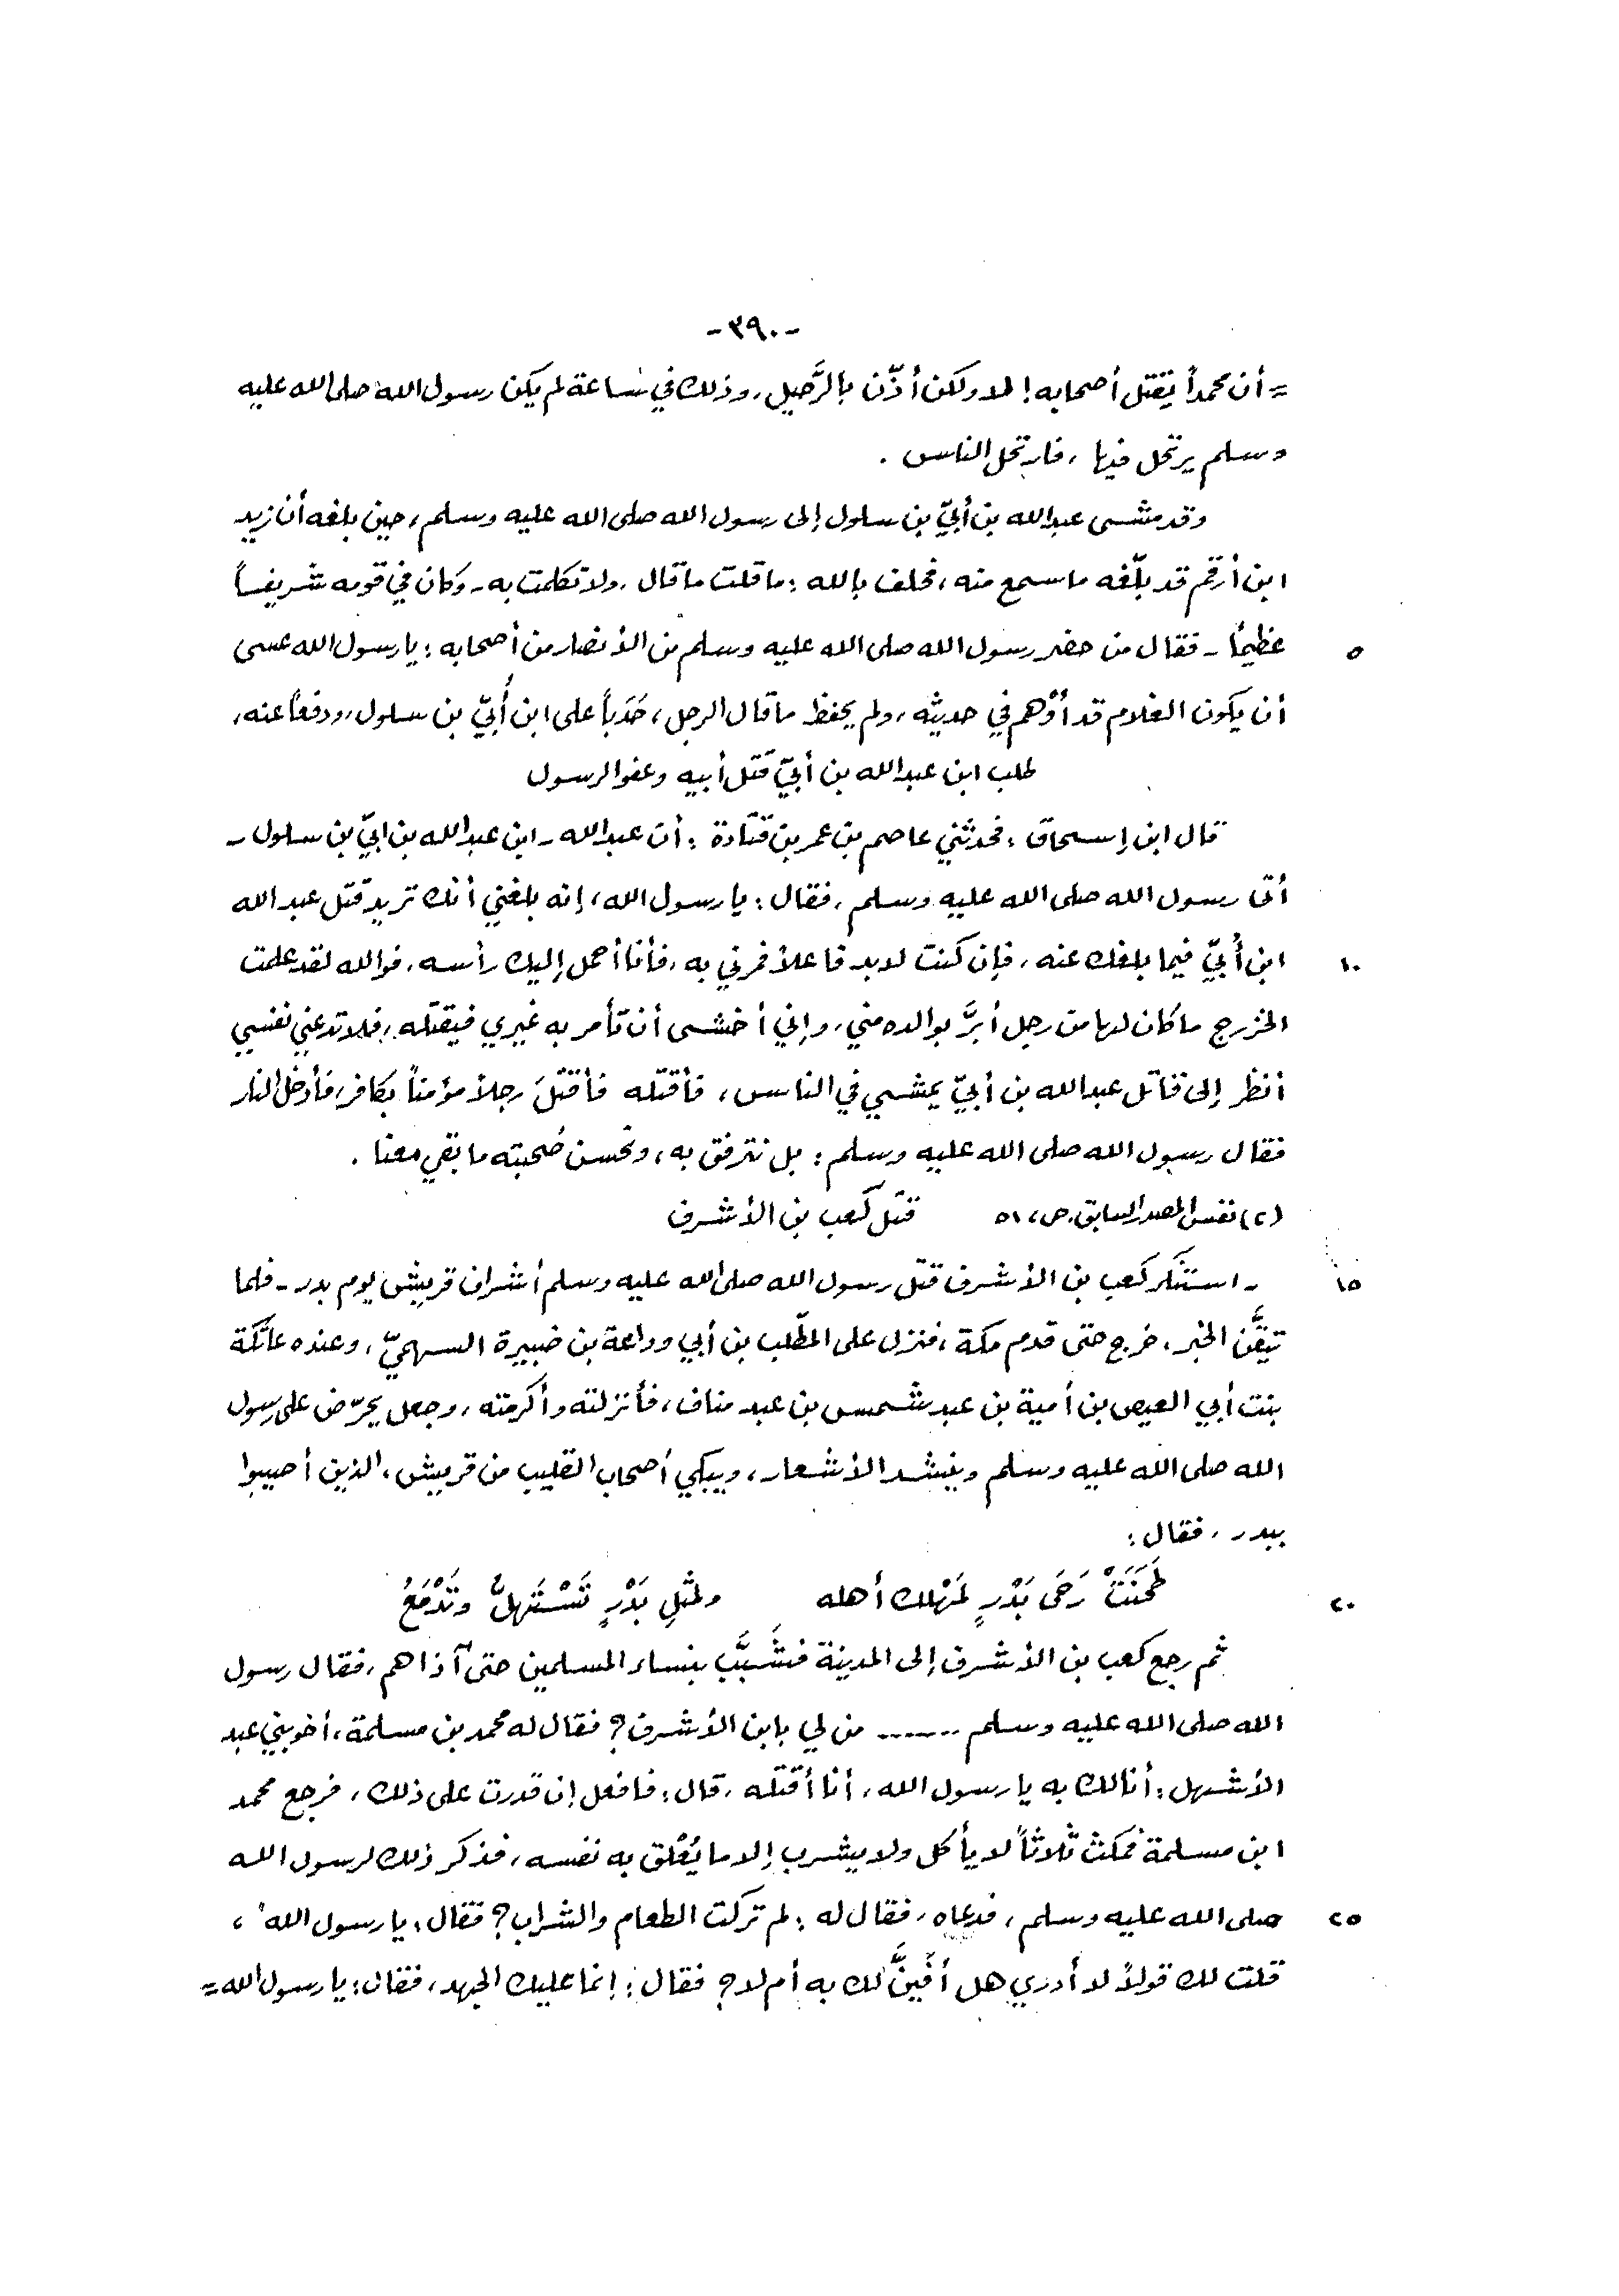 -٣٩٠-
= أن محمداً يقتل أصحابه! لا ولكن أذّن بالرَّحيل، وذلك في ساعة لم يكن رسول الله صلى الله عليه
وسلم يرتحل فيها، فارتحل الناس.
وقد مشى عبد الله بن أبيّ بن سلول إلى رسول الله صلى الله عليه وسلم، حين بلغه أن زيد
ابن أرقم قد بلّغه ما سمع منه، فحلف بالله: ما قلت ما قال، ولا تكلمت به - وكان في قومه شريفاً
٥ عظيماً - فقال من حضر رسول الله صلى الله عليه وسلم من الأنصار من أصحابه: يا رسول الله عسى
أن يكون الغلام قد أوْهم في حديثه، ولم يحفظ ما قال الرجل، حَدَباً على ابن أُبيّ بن سلول، ودفعاً عنه،
طلب ابن عبد الله بن أبيّ قتل أبيه وعفو الرسول
قال ابن إسحاق: فحدثني عاصم بن عمر بن قتادة: أن عبد الله - ابن عبد الله بن ابيّ بن سلول -
أتى رسول الله صلى الله عليه وسلم، فقال: يا رسول الله، إنه بلغني أنك تريد قتل عبد الله
١٠ ابن أُبيّ فيما بلغك عنه، فإن كنت لا بد فاعلاً فمرني به، فأنا أحمل إليك رأسه، فوالله لقد علمت
الخزرج ما كان لها من رجل أبرَّ بوالده مني، وإني أخشى أن تأمر به غيري فيقتله، فلا تدعني نفسي
أنظر إلى قاتل عبد الله بن أبيّ يمشي في الناس، فأقتله فأقتلَ رجلاً مؤمناً بكافر، فأدخل النار
فقال رسول الله صلى الله عليه وسلم: بل نترفق به، ونحسن صُحبته ما بقي معنا.
(٢) نفس المصدر السابق، ص، ٥١ قتل كعب بن الأشرف
١٥ - استنكر كعب بن الأشرف قتل رسول الله صلى الله عليه وسلم أشراف قريش يوم بدر - فلما
تيقَّن الخبر، خرج حتى قدم مكة، فنزل على المطّلب بن أبي وداعة بن ضبيرة السهميّ، وعنده عاتكة
بنت أبي العيص بن أمية بن عبد شمس بن عبد مناف، فأنزلته وأكرمته، وجعل يحرّض على رسول
الله صلى الله عليه وسلم وينشد الأشعار، ويبكي أصحاب القليب من قريش، الذين أصيبوا
ببدر، فقال:
٢٠ طَحَنَتْ رَحَى بَدْرٍ لمَهْلك أهله ولمثلِ بَدْرٍ تَسْتَهلُّ وتَدْمَعُ
ثم رجع كعب بن الأشرف إلى المدينة فشَبَّب بنساء المسلمين حتى آذاهم، فقال رسول
الله صلى الله عليه وسلم ...... من لي بابن الأشرف؟ فقال له محمد بن مسلمة، أخو بني عبد
الأشهل: أنا لك به يا رسول الله، أنا أقتله، قال: فافعل إن قدرت على ذلك، فرجع محمد
ابن مسلمة فمكث ثلاثاً لا يأكل ولا يشرب إلا ما يُعْلق به نفسه، فذكر ذلك لرسول الله
٢٥ صلى الله عليه وسلم، فدعاه، فقال له: لم تركت الطعام والشراب؟ فقال: يا رسول الله،
قلت لك قولاً لا أدري هل أفينَّ لك به أم لا؟ فقال: إنما عليك الجهد، فقال: يا رسول الله =